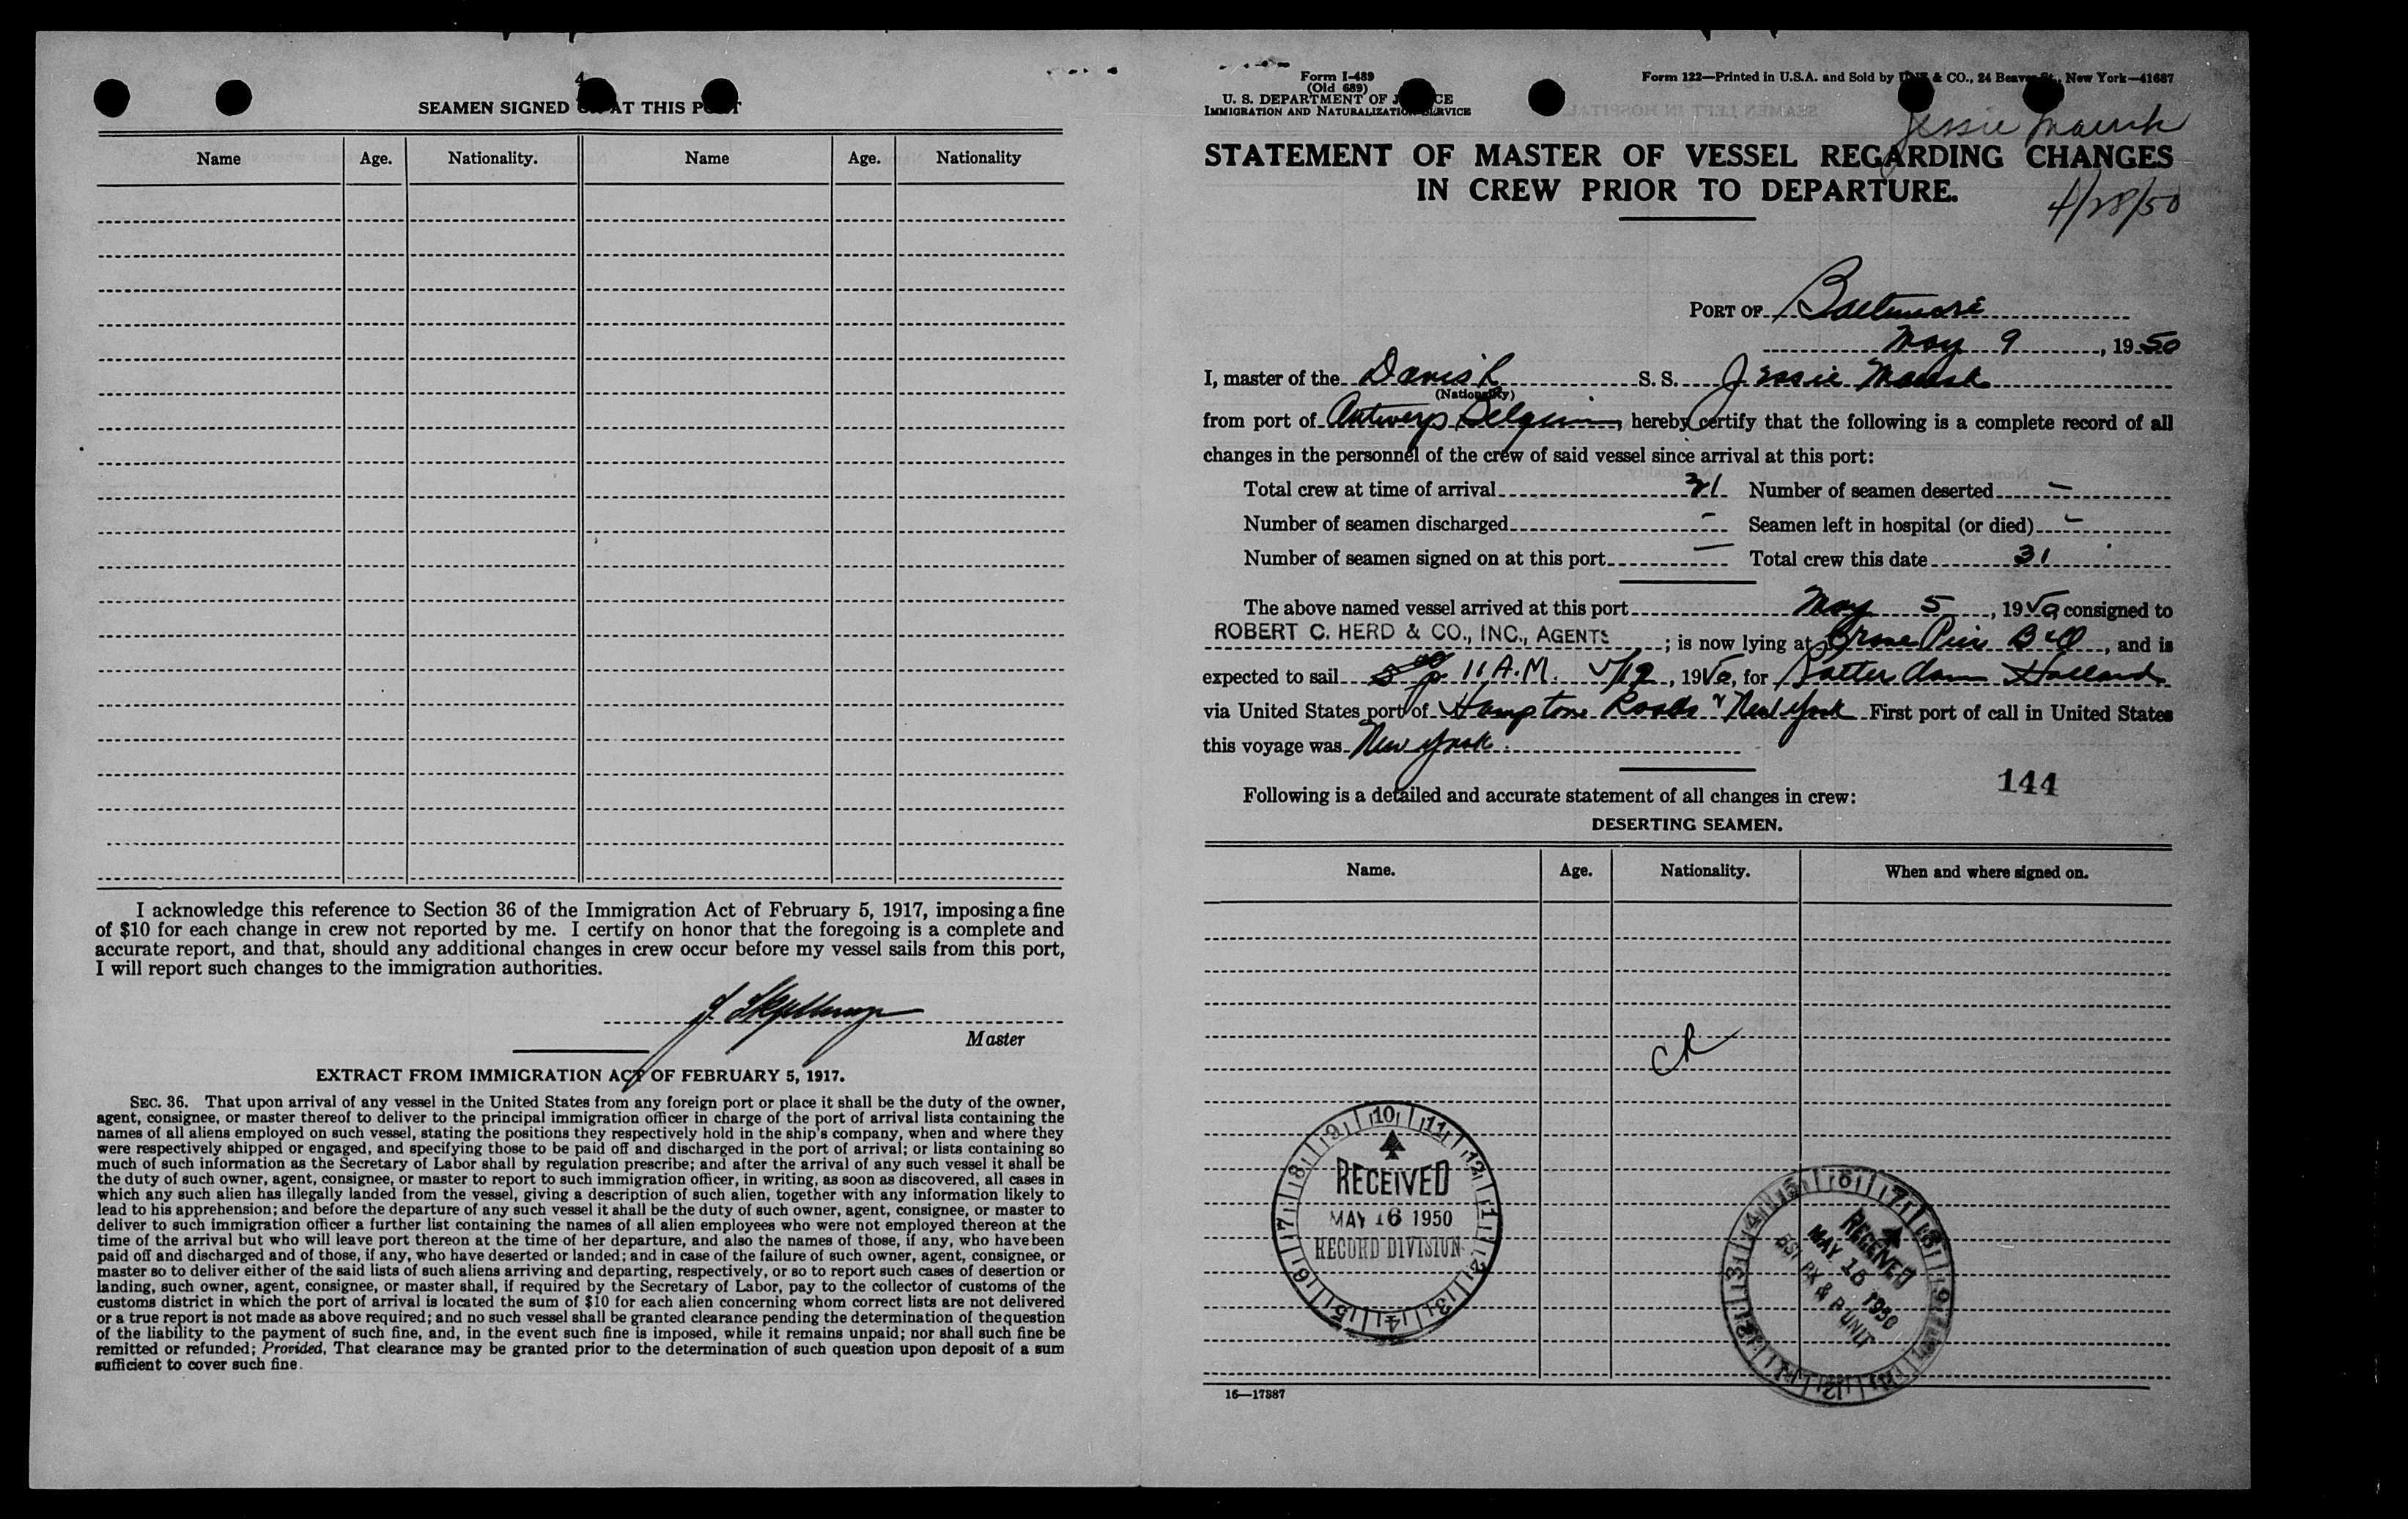 4
SEAMEN SIGNED AT THIS PORT
Name Age. Nationality. Name Age. Nationality
I acknowledge this reference to Section 36 of the Immigration Act of February 5, 1917, imposing a fine
of $10 for each change in crew not reported by me. I certify on honor that the foregoing is a complete and
accurate report, and that, should any additional changes in crew occur before my vessel sails from this port,
I will report such changes to the immigration authorities.
Master
EXTRACT FROM IMMIGRATION ACT OF FEBRUARY 5, 1917.
SEC. 36. That upon arrival of any vessel in the United States from any foreign port or place it shall be the duty of the owner,
agent, consignee, or master thereof to deliver to the principal immigration officer in charge of the port of arrival lists containing the
names of all aliens employed on such vessel, stating the positions they respectively hold in the ship's company, when and where they
were respectively shipped or engaged, and specifying those to be paid off and discharged in the port of arrival; or lists containing so
much of such information as the Secretary of Labor shall by regulation prescribe; and after the arrival of any such vessel it shall be
the duty of such owner, agent, consignee, or master to report to such immigration officer, in writing, as soon as discovered, all cases in
which any such alien has illegally landed from the vessel, giving a description of such alien, together with any information likely to
lead to his apprehension; and before the departure of any such vessel it shall be the duty of such owner, agent, consignee, or master to
deliver to such immigration officer a further list containing the names of all alien employees who were not employed thereon at the
time of the arrival but who will leave port thereon at the time of her departure, and also the names of those, if any, who have been
paid off and discharged and of those, if any, who have deserted or landed; and in case of the failure of such owner, agent, consignee, or
master so to deliver either of the said lists of such aliens arriving and departing, respectively, or so to report such cases of desertion or
landing, such owner, agent, consignee, or master shall, if required by the Secretary of Labor, pay to the collector of customs of the
customs district in which the port of arrival is located the sum of $10 for each alien concerning whom correct lists are not delivered
or a true report is not made as above required; and no such vessel shall be granted clearance pending the determination of the question
of the liability to the payment of such fine, and, in the event such fine is imposed, while it remains unpaid; nor shall such fine be
remitted or refunded; Provided, That clearance may be granted prior to the determination of such question upon deposit of a sum
sufficient to cover such fine.
Form I-489
(Old 689)
U. S. DEPARTMENT OF JUSTICE
IMMIGRATION AND NATURALIZATION SERVICE
Form 122—Printed in U.S.A. and Sold by UNZ & CO., 24 Beaver St., New York—41687
Jessie Maersk
STATEMENT OF MASTER OF VESSEL REGARDING CHANGES
IN CREW PRIOR TO DEPARTURE.
4/28/50
PORT OF Baltimore
May 9, 1950
I, master of the Danish S. S. Jessie Maersk
(Nationality)
from port of Antwerp Belgium, hereby certify that the following is a complete record of all
changes in the personnel of the crew of said vessel since arrival at this port:
Total crew at time of arrival 31 Number of seamen deserted -
Number of seamen discharged - Seamen left in hospital (or died) -
Number of seamen signed on at this port - Total crew this date 31
The above named vessel arrived at this port May 5, 1950 consigned to
ROBERT C. HERD & CO., INC., AGENTS; is now lying at Pier B&O, and is
expected to sail 11 A.M., 1950, for Rotterdam Holland
via United States port of Hampton Roads & New York First port of call in United States
this voyage was New York.
144
Following is a detailed and accurate statement of all changes in crew:
DESERTING SEAMEN.
Name. Age. Nationality. When and where signed on.
RECEIVED
MAY 16 1950
RECORD DIVISION
RECEIVED
MAY 15 1950
16—17387